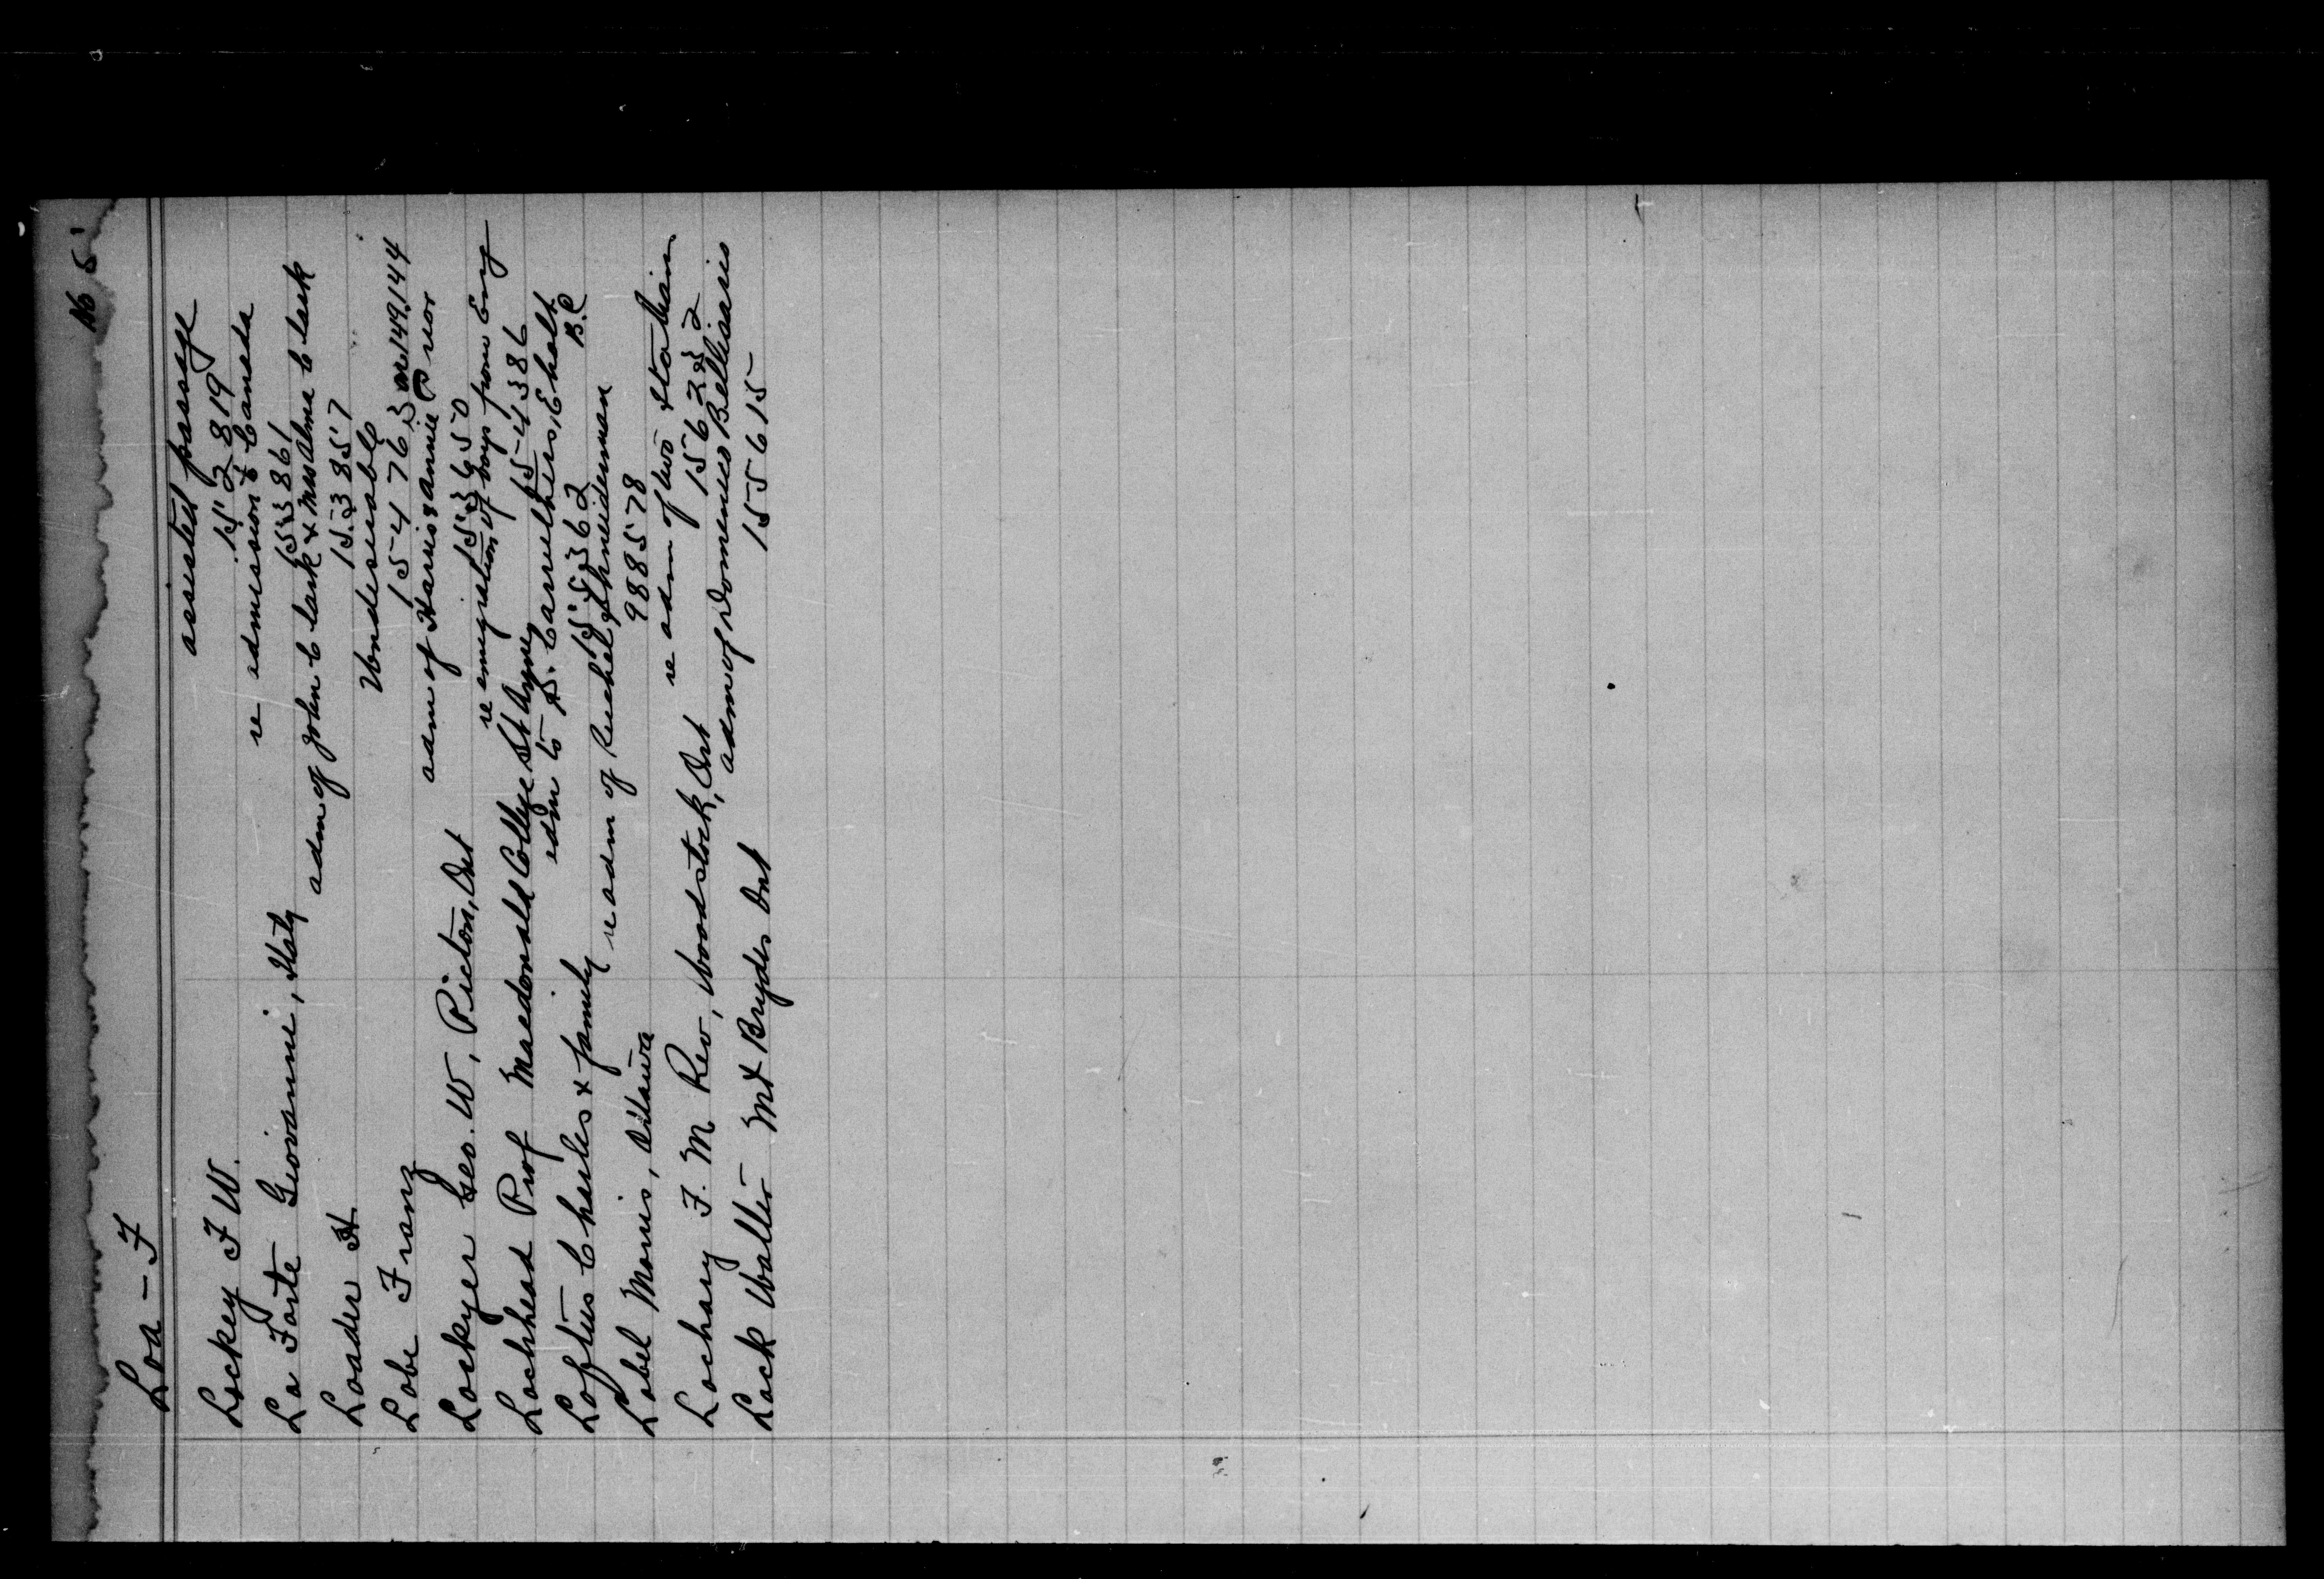 No 5
Loa - F
assisted passage
Lockey F W. 152819
re admission to Canada
Lo Forte Giovanni, Italy 153861
adm of John Clark & Mrs Alma Clark
Loader H 153857
Undesirable
Lobe Franz 154763 or 149144
adm of Harris & Annie
Lockyer Geo. W, Picton, Ont 153650
re emigration of boys from Eng
Lochhead Prof Macdonald College St Anne 154386
adm to D. Carruthers, Eholt B.C
Loftus Charles & family 155362
re adm of Ruchel Schneiderman
Lobel Morris, Ottawa 988578
re adm of two
Lochary F. M Rev, Woodstock, Ont 156232
adm of Domenico Bellisario
Lock Walter Mt Brydes Ont 155615